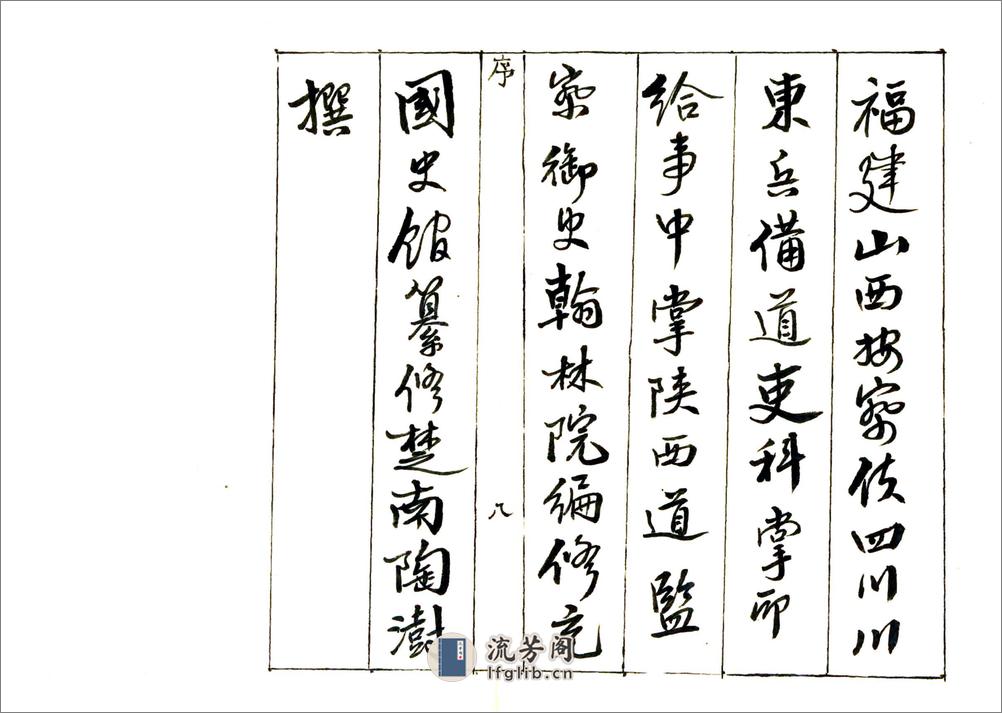 福建山西按察使四川川
東兵備道吏科掌印
給事中掌陕西道監
察御史翰林院編修充
序
八
國史館纂修楚南陶澍
撰
流芳阁
lfglib.cn